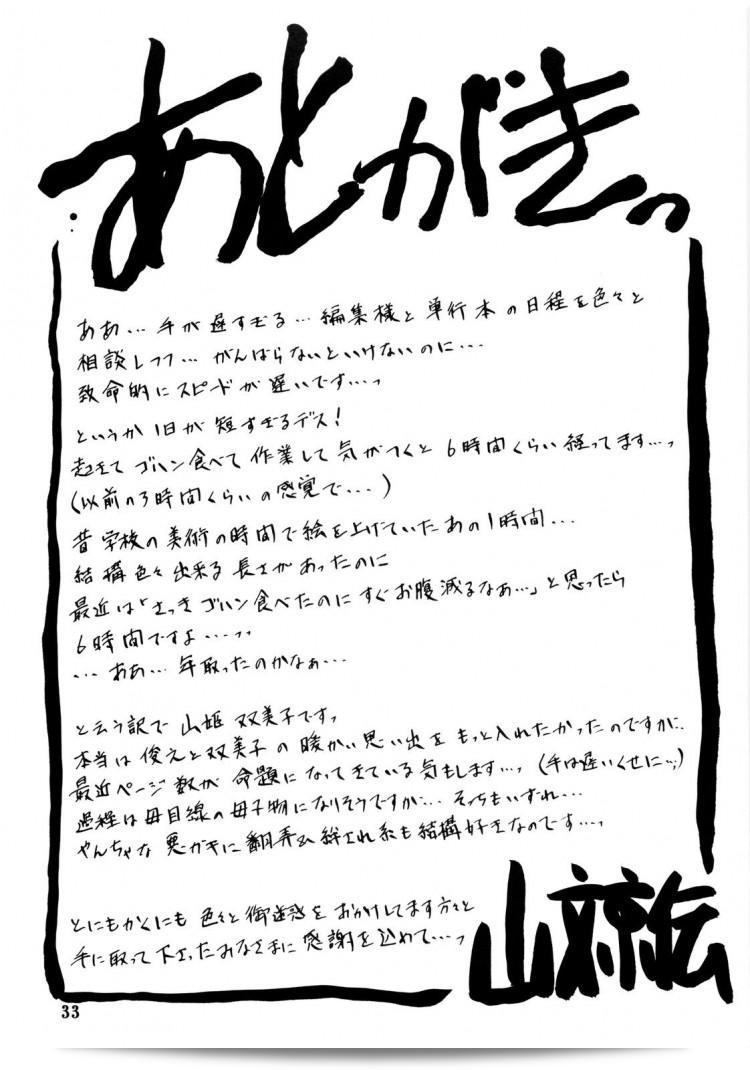 あとがきっ
ああ…手が遅すぎる…編集様と単行本の日程を色々と
相談しつつ…がんばらないといけないのに…
致命的にスピードが遅いです…っ
というか1日が短すぎるデス!
起きてゴハン食べて作業して気がつくと6時間くらい経ってます…っ
(以前の3時間くらいの感覚で…)
昔学校の美術の時間で絵を上げていたあの1時間…
結構色々出来る長さがあったのに
最近は「さっきゴハン食べたのにすぐお腹減るなあ…」と思ったら
6時間ですよ…っっ
…ああ…年取ったのかなぁ…
と云う訳で山姫双美子ですっ
本当は俊之と双美子の暖かい思い出をもっと入れたかったのですが、
最近ページ数が命題になってきている気もします…っ(手は遅いくせに…;)
過程は母目線の母子物になりそうですが…そっちもいずれ…
やんちゃな悪ガキに翻弄され系も結構好きなのです…っ
とにもかくにも色々と御迷惑をおかけしてます方々と
手に取って下さったみなさまに感謝を込めて…っ
山文京伝
33